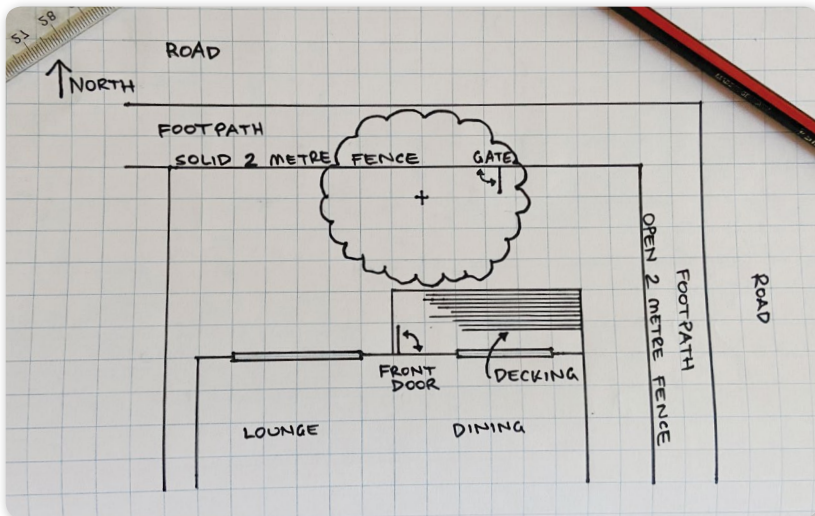 ROAD
NORTH
FOOTPATH
SOLID 2 METRE FENCE
GATE
OPEN 2 METRE FENCE
FOOTPATH
ROAD
FRONT
DOOR
DECKING
LOUNGE
DINING